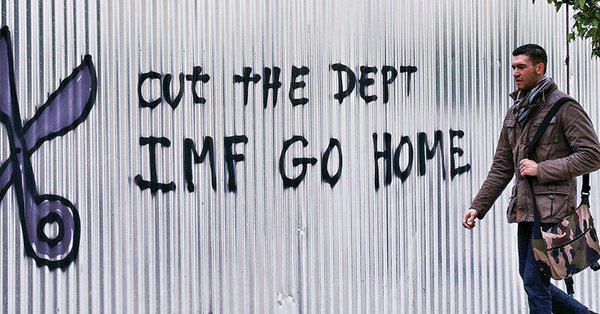 CUt tHE DEPT
IMF GO HOME